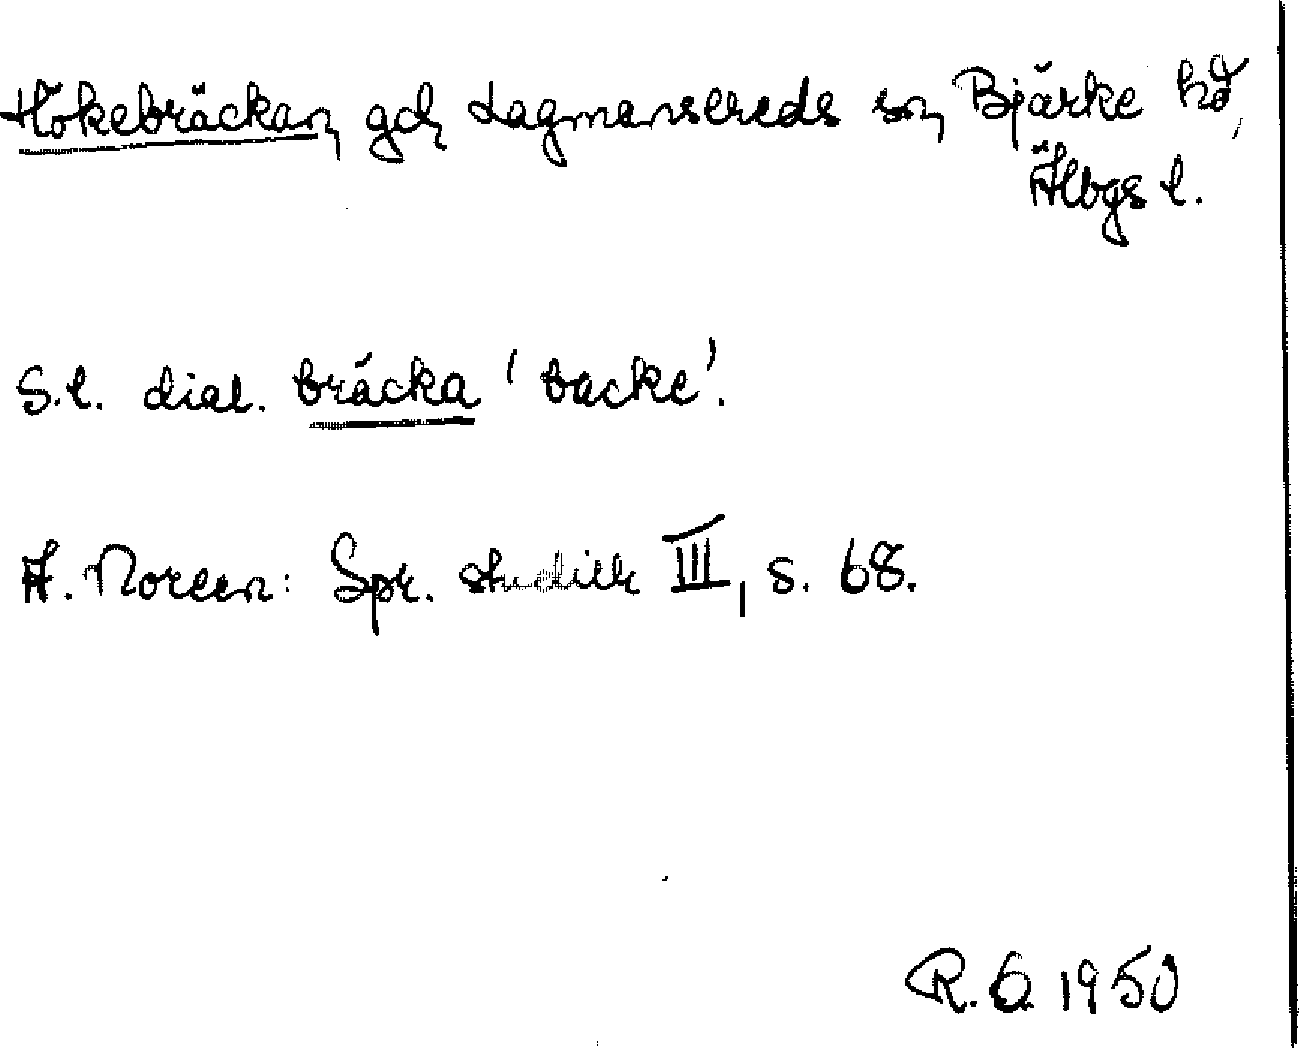 Hökebräckan, gd, Lagmansereds sn, Bjärke hd,
Älvbgs l.
S.l. dial. bräcka 'backe'.
A. Noreen: Spr. studier III, s. 68.
R. 1950